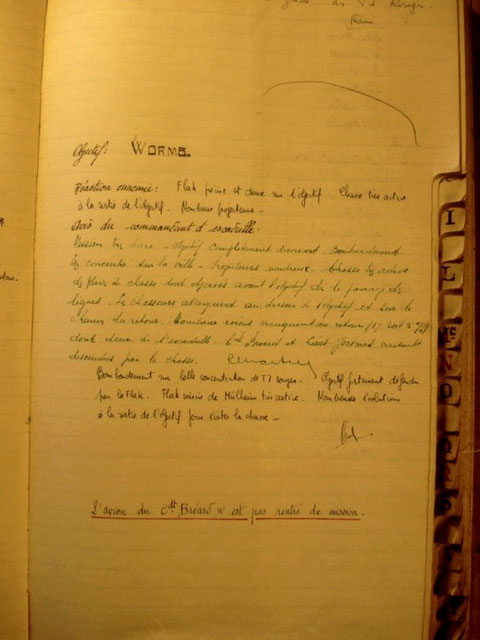 des T.I. Rouges.
Objectif: WORMS.
Réaction ennemie: Flak précise et dense sur l'objectif. Chasse très active
à la sortie de l'objectif. Nombreux projecteurs.
Avis du commandant d'escadrille:
Mission très dure - objectif complètement découvert. bombardement
très concentré sur la ville - Projecteurs nombreux. Chasse très active
des flares de chasse sont observés avant l'objectif dès le passage des
lignes. Les chasseurs attaquent au dessus de l'objectif et sur le
chemin du retour. avions manquent au retour
dont deux de l'escadrille. Cdt Bréard et Lieut
descendus par la chasse.
Bombardement sur belle concentration de TI rouges. Objectif fortement défendu
par la Flak. Flak de Mülheim très active. Nombreuses évolutions
à la sortie de l'objectif pour éviter la chasse -
L'avion du Cdt Bréard n'est pas rentré de mission.
I
J
K
L
Mc
N
O